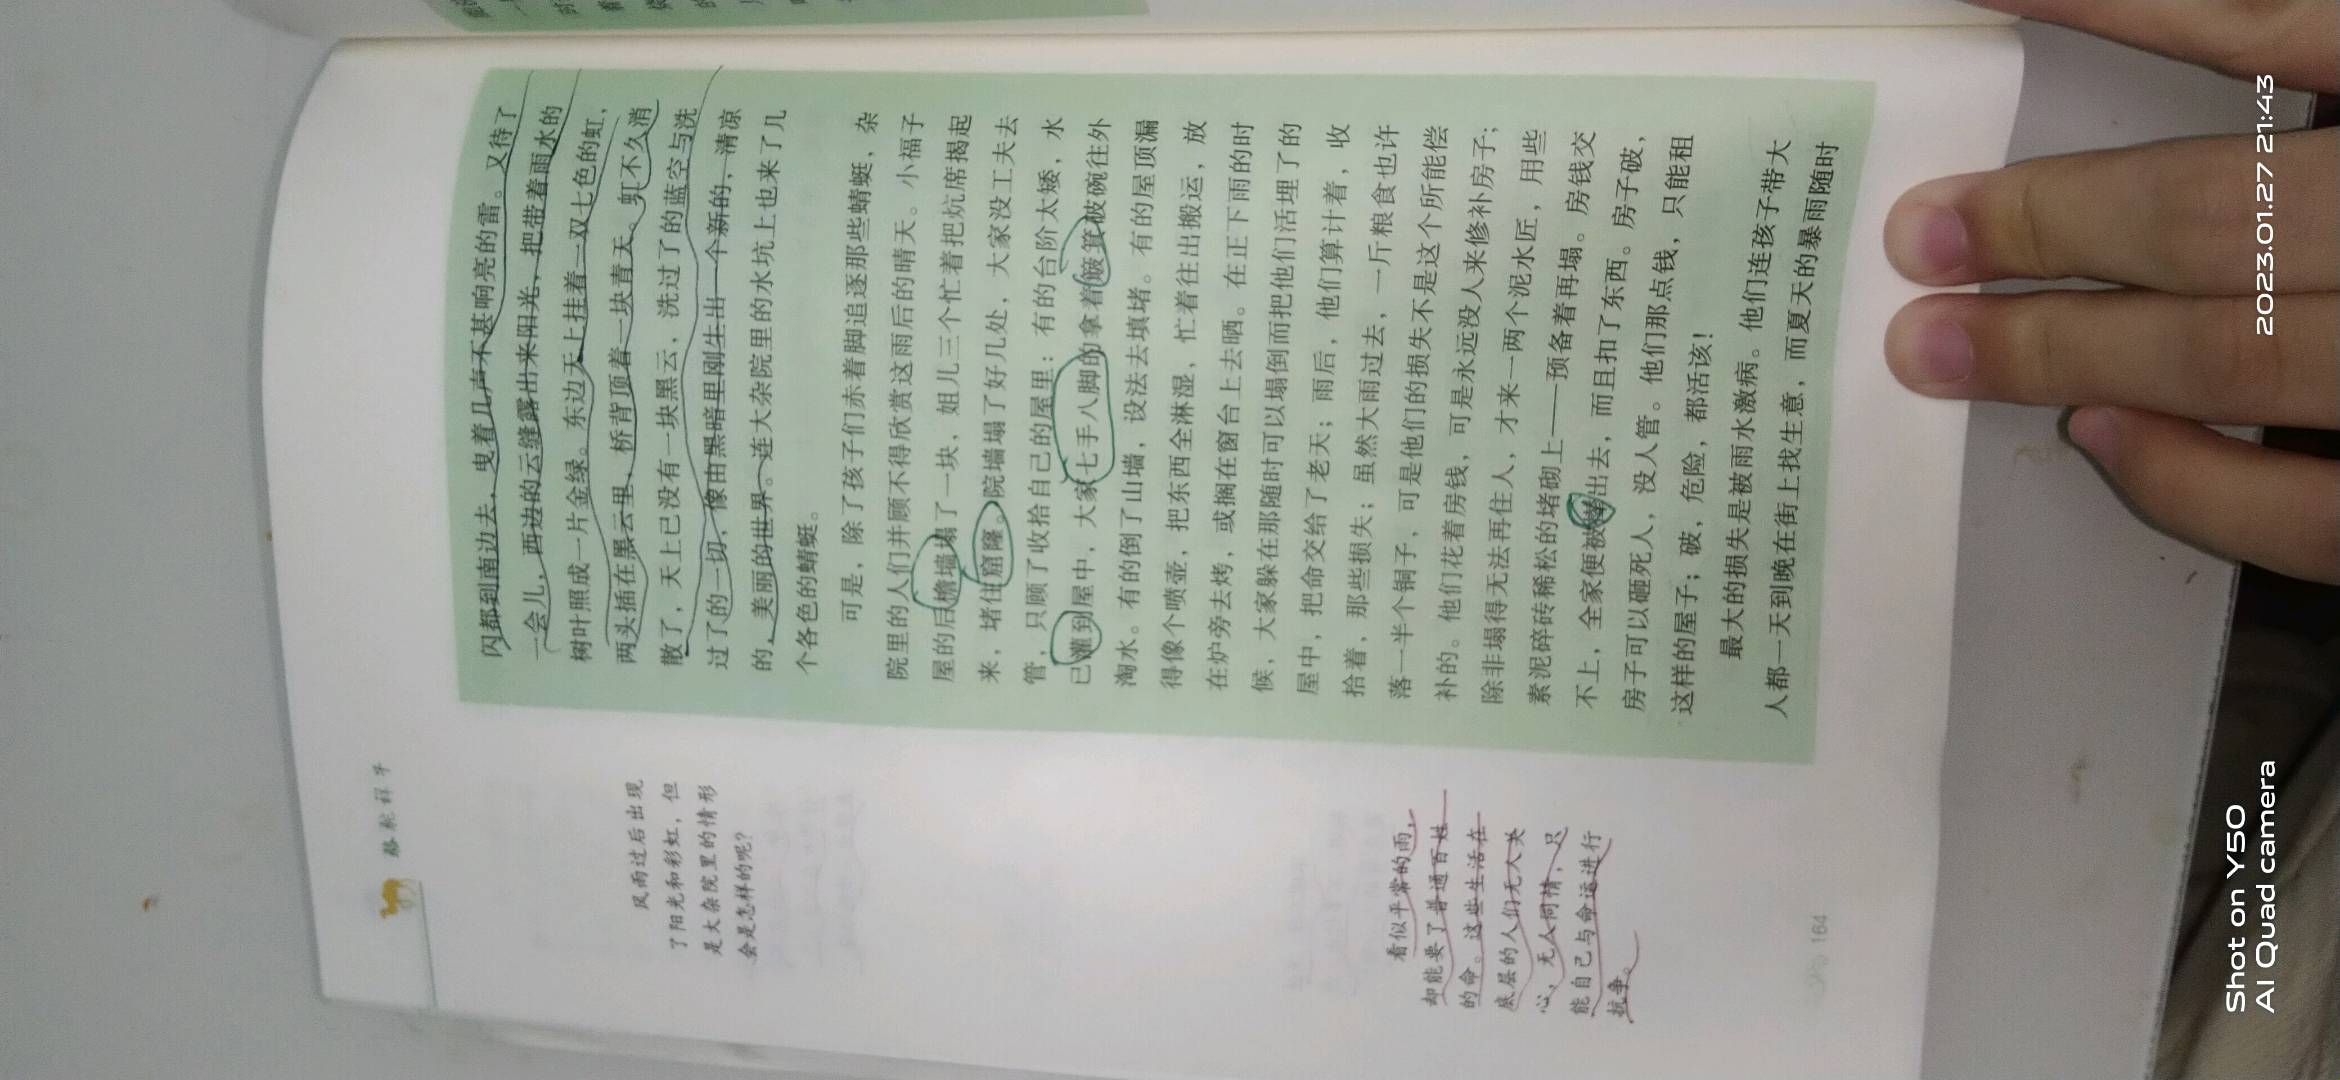 骆驼祥子
闪都到南边去，曳着几声不甚响亮的雷。又待了
一会儿，西边的云缝露出来阳光，把带着雨水的
树叶照成一片金绿。东边天上挂着一双七色的虹，
两头插在黑云里，桥背顶着一块青天。虹不久消
散了，天上已没有一块黑云，洗过了的蓝空与洗
过了的一切，像由黑暗里刚生出一个新的，清凉
的，美丽的世界。连大杂院里的水坑上也来了几
个各色的蜻蜓。
可是，除了孩子们赤着脚追逐那些蜻蜓，杂
院里的人们并顾不得欣赏这雨后的晴天。小福子
屋的后檐墙塌了一块，姐儿三个忙着把炕席揭起
来，堵住窟窿。院墙塌了好几处，大家没工夫去
管，只顾了收拾自己的屋里：有的台阶太矮，水
已灌到屋中，大家七手八脚的拿着簸箕破碗往外
淘水。有的倒了山墙，设法去填堵。有的屋顶漏
得像个喷壶，把东西全淋湿，忙着往出搬运，放
在炉旁去烤，或搁在窗台上去晒。在正下雨的时
候，大家躲在那随时可以塌倒而把他们活埋了的
屋中，把命交给了老天；雨后，他们算计着，收
拾着，那些损失；虽然大雨过去，一斤粮食也许
落一半个铜子，可是他们的损失不是这个所能偿
补的。他们花着房钱，可是永远没人来修补房子；
除非塌得无法再住人，才来一两个泥水匠，用些
素泥碎砖稀松的堵砌上——预备着再塌。房钱交
不上，全家便被撵出去，而且扣了东西。房子破，
房子可以砸死人，没人管。他们那点钱，只能租
这样的屋子；破，危险，都活该！
最大的损失是被雨水激病。他们连孩子带大
人都一天到晚在街上找生意，而夏天的暴雨随时
风雨过后出现
了阳光和彩虹，但
是大杂院里的情形
会是怎样的呢？
看似平常的雨，
却能要了普通百姓
的命。这些生活在
底层的人们无人关
心，无人同情，只
能自己与命运进行
抗争。
164
2023.01.27 21:43
Shot on Y50
AI Quad camera